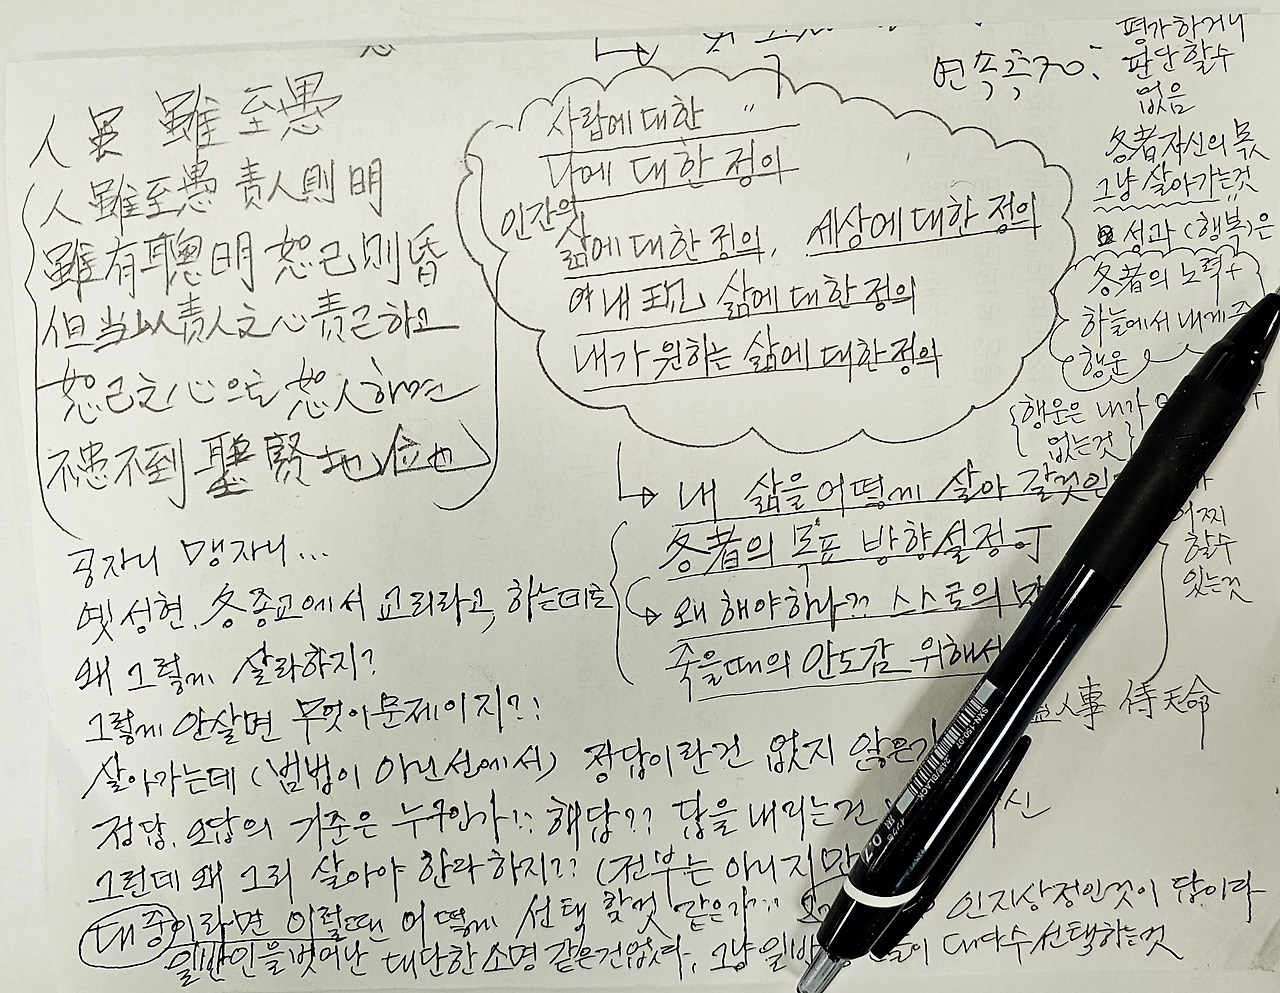 人 虽 雖 至愚
人 雖至愚 責人則明
雖有聰明 恕己則昏
但当以責人之心責己하고
恕己之心으로 恕人하면
不患不到 聖賢地位也
공자니 맹자니...
옛 성현, 各종교에서 교리라고, 하는데로
왜 그렇게 살라하지?
그렇게 안살면 무엇이문제이지??
살아가는데 (범법이 아닌선에서) 정답이란건 없지 않은가
정답, 오답의 기준은 누구인가?? 해답?? 답을 내리는건
그런데 왜 그리 살아야 한다하지?? (전부는 아니지만
대중이라면 이럴때 어떻게 선택 할것 같은가?? 인지상정인것이 답이다
일반인을벗어난 대단한소명 같은건없다, 그냥 일반 대다수선택하는것
사람에 대한 〃
나에 대한 정의
인간의
삶에 대한 정의, 세상에 대한 정의
여내 삶에 대한 정의
내가 원하는 삶에 대한정의
내 삶을 어떻게 살아 갈것인
各者의 목표 방향설정
왜 해야하나?? 스스로의
죽을때의 안도감 위해서
人事 侍天命
연속측정:
평가하거나
판단할수
없음
各者자신의 몫
그냥 살아가는것
성과(행복)은
各者의 노력+
하늘에서 내게준
행운
행운은 내가
없는것
어찌
할수
있는것
SXN-150-07
BLACK
0.7